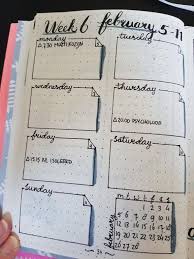 Week 6 february 5-11
monday
tuesday
△ 7.30
wednesday
thursday
△ 20.00
friday
saturday
△ 15.15
sunday
february
m t w t f s s
1 2 3 4
5 6 7 8 9 10 11
12 13 14 15 16 17 18
19 20 21 22 23 24 25
26 27 28